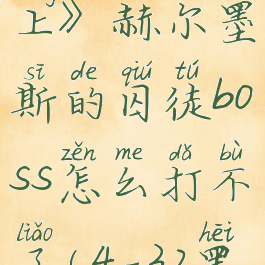 上》赫尔墨
sī de qiú tú
斯的囚徒bo
zěn me dǎ bù
ss怎么打不
liǎo hēi
了(4-3)黑